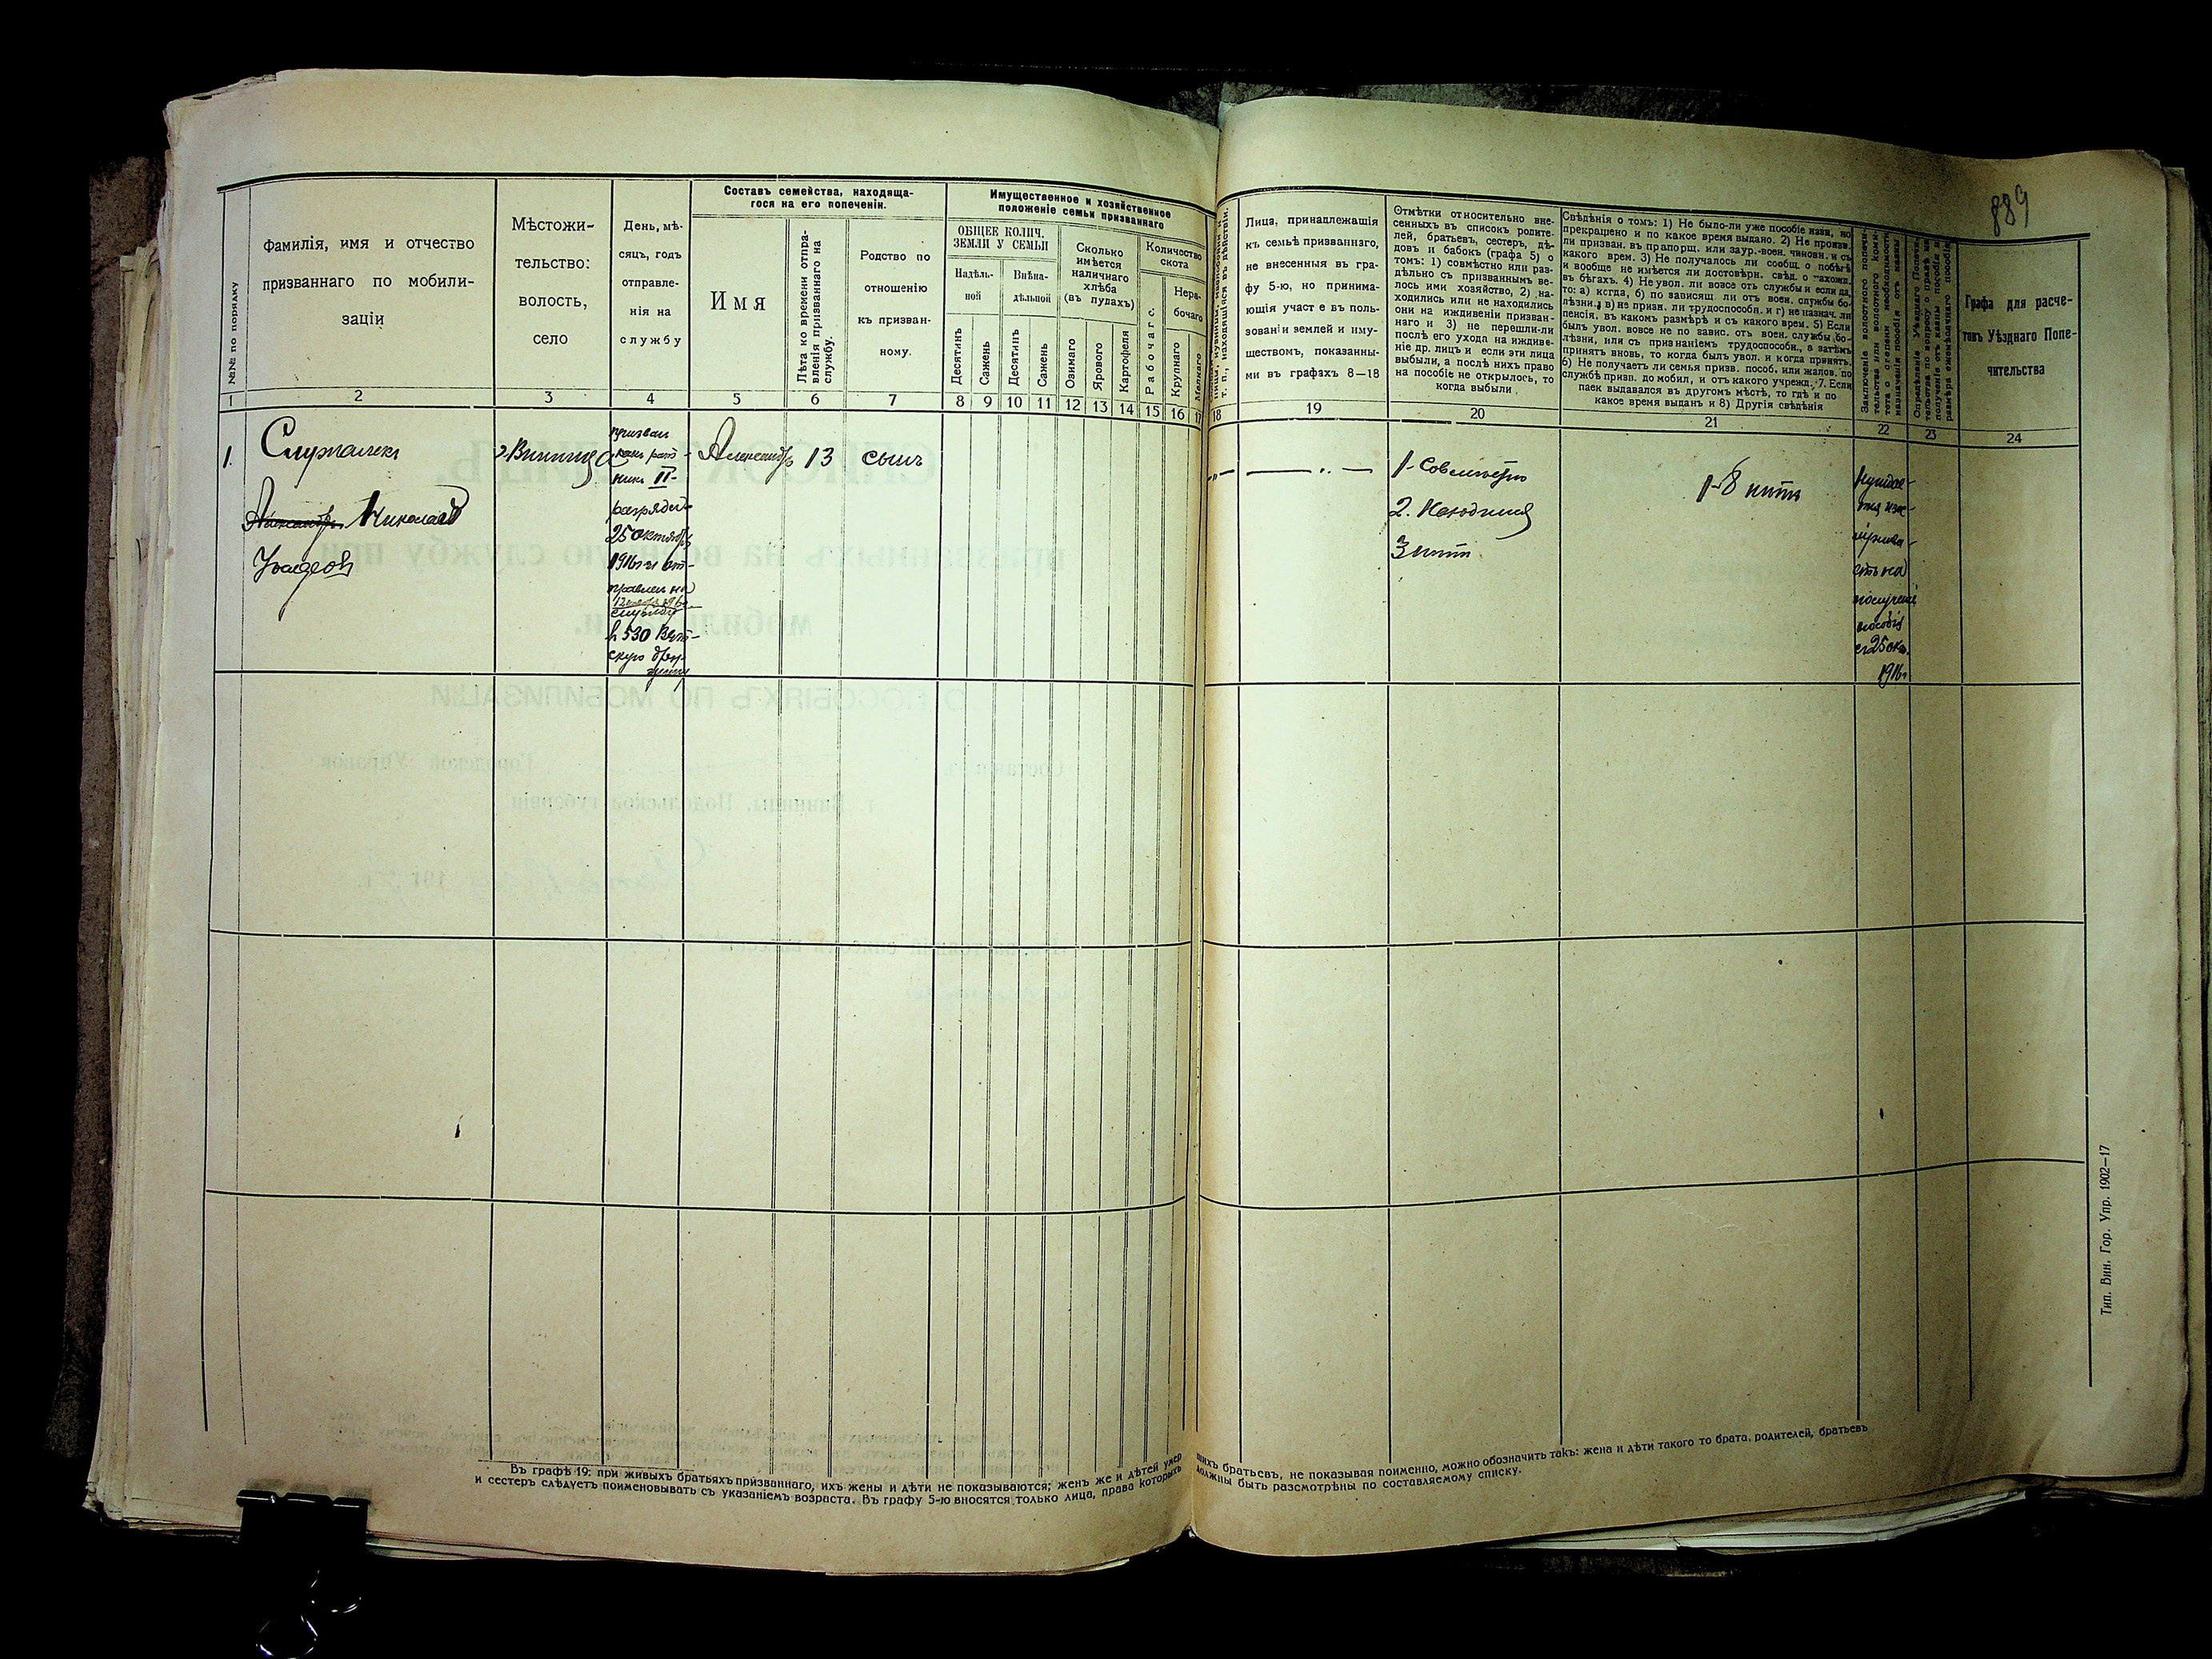 889
№№ по порядку
Фамилія, имя и отчество
призваннаго по мобили-
заціи
Мѣстожи-
тельство:
волость,
село
День, мѣ-
сяцъ, годъ
отправле-
нія на
службу
Составъ семейства, находяща-
гося на его попеченіи.
Имя
Лѣта ко времени отпра-
вленія призваннаго на
службу.
Родство по
отношенію
къ призван-
ному.
Имущественное и хозяйственное
положеніе семьи призваннаго
ОБЩЕЕ КОЛИЧ.
ЗЕМЛИ У СЕМЬИ
Надѣль-
ной
Внѣна-
дѣльной
Десятинъ
Сажень
Десятинъ
Сажень
Сколько
имѣется
наличнаго
хлѣба
(въ пудахъ)
Озимаго
Ярового
Картофеля
Количество
скота
Рабочаго
Нера-
бочаго
Крупнаго
Мелкаго
т. п., находящіяся въ дѣйствіи.
Лица, принадлежашія
къ семьѣ призваннаго,
не внесенныя въ гра-
фу 5-ю, но принима-
ющія участ е въ поль-
зованіи землей и иму-
ществомъ, показанны-
ми въ графахъ 8—18
Отмѣтки относительно вне-
сенныхъ въ списокъ родите-
лей, братьевъ, сестеръ, дѣ-
довъ и бабокъ (графа 5) о
томъ: 1) совмѣстно или раз-
дѣльно съ призваннымъ ве-
лось ими хозяйство, 2) на-
ходились или не находились
они на иждивеніи призван-
наго и 3) не перешли-ли
послѣ его ухода на иждиве-
ніе др. лицъ и если эти лица
выбыли, а послѣ нихъ право
на пособіе не открылось, то
когда выбыли
Свѣдѣнія о томъ: 1) Не было-ли уже пособіе назн, но
прекращено и по какое время выдано. 2) Не произв.
ли призван. въ прапорщ. или заур.-воен. чиновн. и съ
какого врем. 3) Не получалось ли сообщ. о побѣгѣ
и вообще не имѣется ли достовѣрн. свѣд. о нахожд.
въ бѣгахъ. 4) Не увол. ли вовсе отъ службы и если да,
то: а) когда, б) по зависящ. ли отъ воен. службы бо-
лѣзни, в) из призн. ли трудоспособн. и г) не назнач. ли
пенсія, въ какомъ размѣрѣ и съ какого врем. 5) Если
былъ увол. вовсе не по завис. отъ воен. службы бо-
лѣзни, или съ признаніемъ трудоспособн., а затѣмъ
принятъ вновь, то когда былъ увол. и когда принятъ.
6) Не получаетъ ли семья призв. пособ. или жалов. по
службѣ призв. до мобил, и отъ какого учрежд. 7. Если
паек выдавался въ другомъ мѣстѣ, то гдѣ и по
какое время выданъ и 8) Другія свѣдѣнія
Заключеніе волостного попечи-
тельства или волостного коми-
тета о степени необходимости
назначенія пособія отъ казны
Опредѣленіе Уѣзднаго Попечи-
тельства по вопросу о правѣ на
полученіе отъ казны пособія и
размѣра ежемѣсячнаго пособія
Графа для расче-
товъ Уѣзднаго Попе-
чительства
1 2 3 4 5 6 7 8 9 10 11 12 13 14 15 16 17 18 19 20 21 22 23 24
1.
Александръ Николай
г. Винница
призван
какъ рат-
никъ II-
разряда
25 октября
1916 г и от-
правлен на
службу
в 530 Вят-
скую дру-
жину
Александръ 13 сынъ
1. Совмѣстно
2. Находился
3 нѣтъ
1-8 нѣтъ
Нуждае-
пособія
съ 25 окт.
1916 г
Въ графѣ 19: при живыхъ братьяхъ призваннаго, ихъ жены и дѣти не показываются; женъ же и дѣтей умер
шихъ братьевъ, не показывая поименно, можно обозначить такъ: жена и дѣти такого то брата, родителей, братьевъ
и сестеръ слѣдуетъ поименовывать съ указаніемъ возраста. Въ графу 5-ю вносятся только лица, права которыхъ
должны быть разсмотрѣны по составляемому списку.
Тип. Вин. Гор. Упр. 1902—17